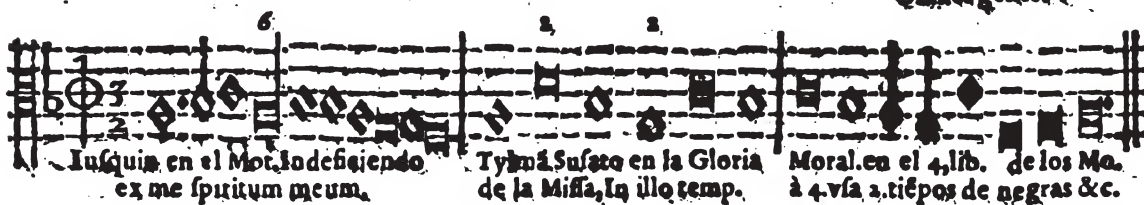 6 2 2
3
2
Iusquin en el Mot. In deficiendo
ex me spiritum meum.
Tylmã. Susato en la Gloria
de la Missa, In illo temp.
Moral. en el 4, lib. de los Mo.
à 4. vsa 2. tiẽpos de negras &c.